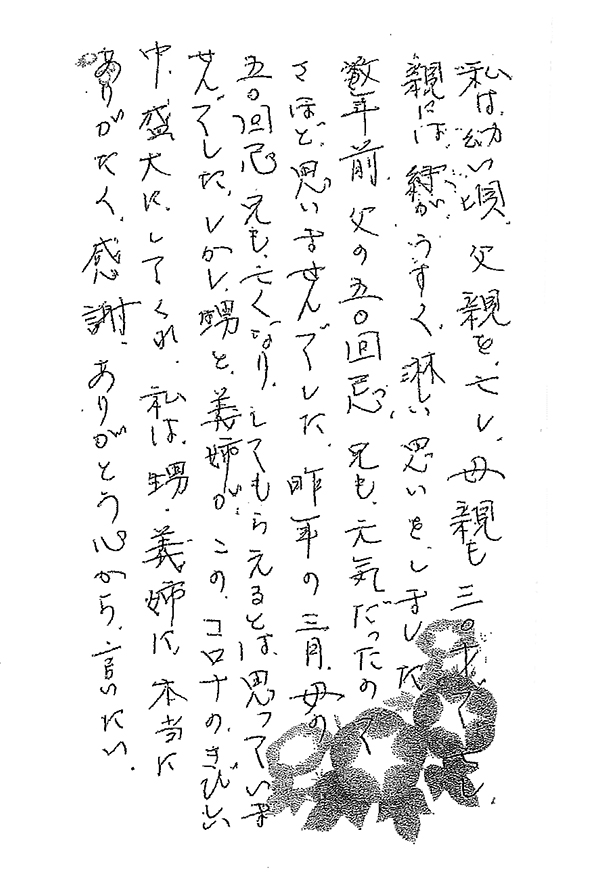 私は、幼い頃、父親を、亡し、母親も三〇才で亡し、
親には、縁が、うすく、淋しい思いを、しました
数年前、父の五〇回忌、兄も、元気だったので
さほど、思いませんでした、昨年の三月、母の
五〇回忌、兄も、亡くなり、してもらえるとは、思っていま
せんでした、しかし、甥と、義姉が、この、コロナの、きびしい
中、盛大に、してくれ、私は、甥・義姉に、本当に
ありがたく、感謝、ありがとう心から、言いたい、